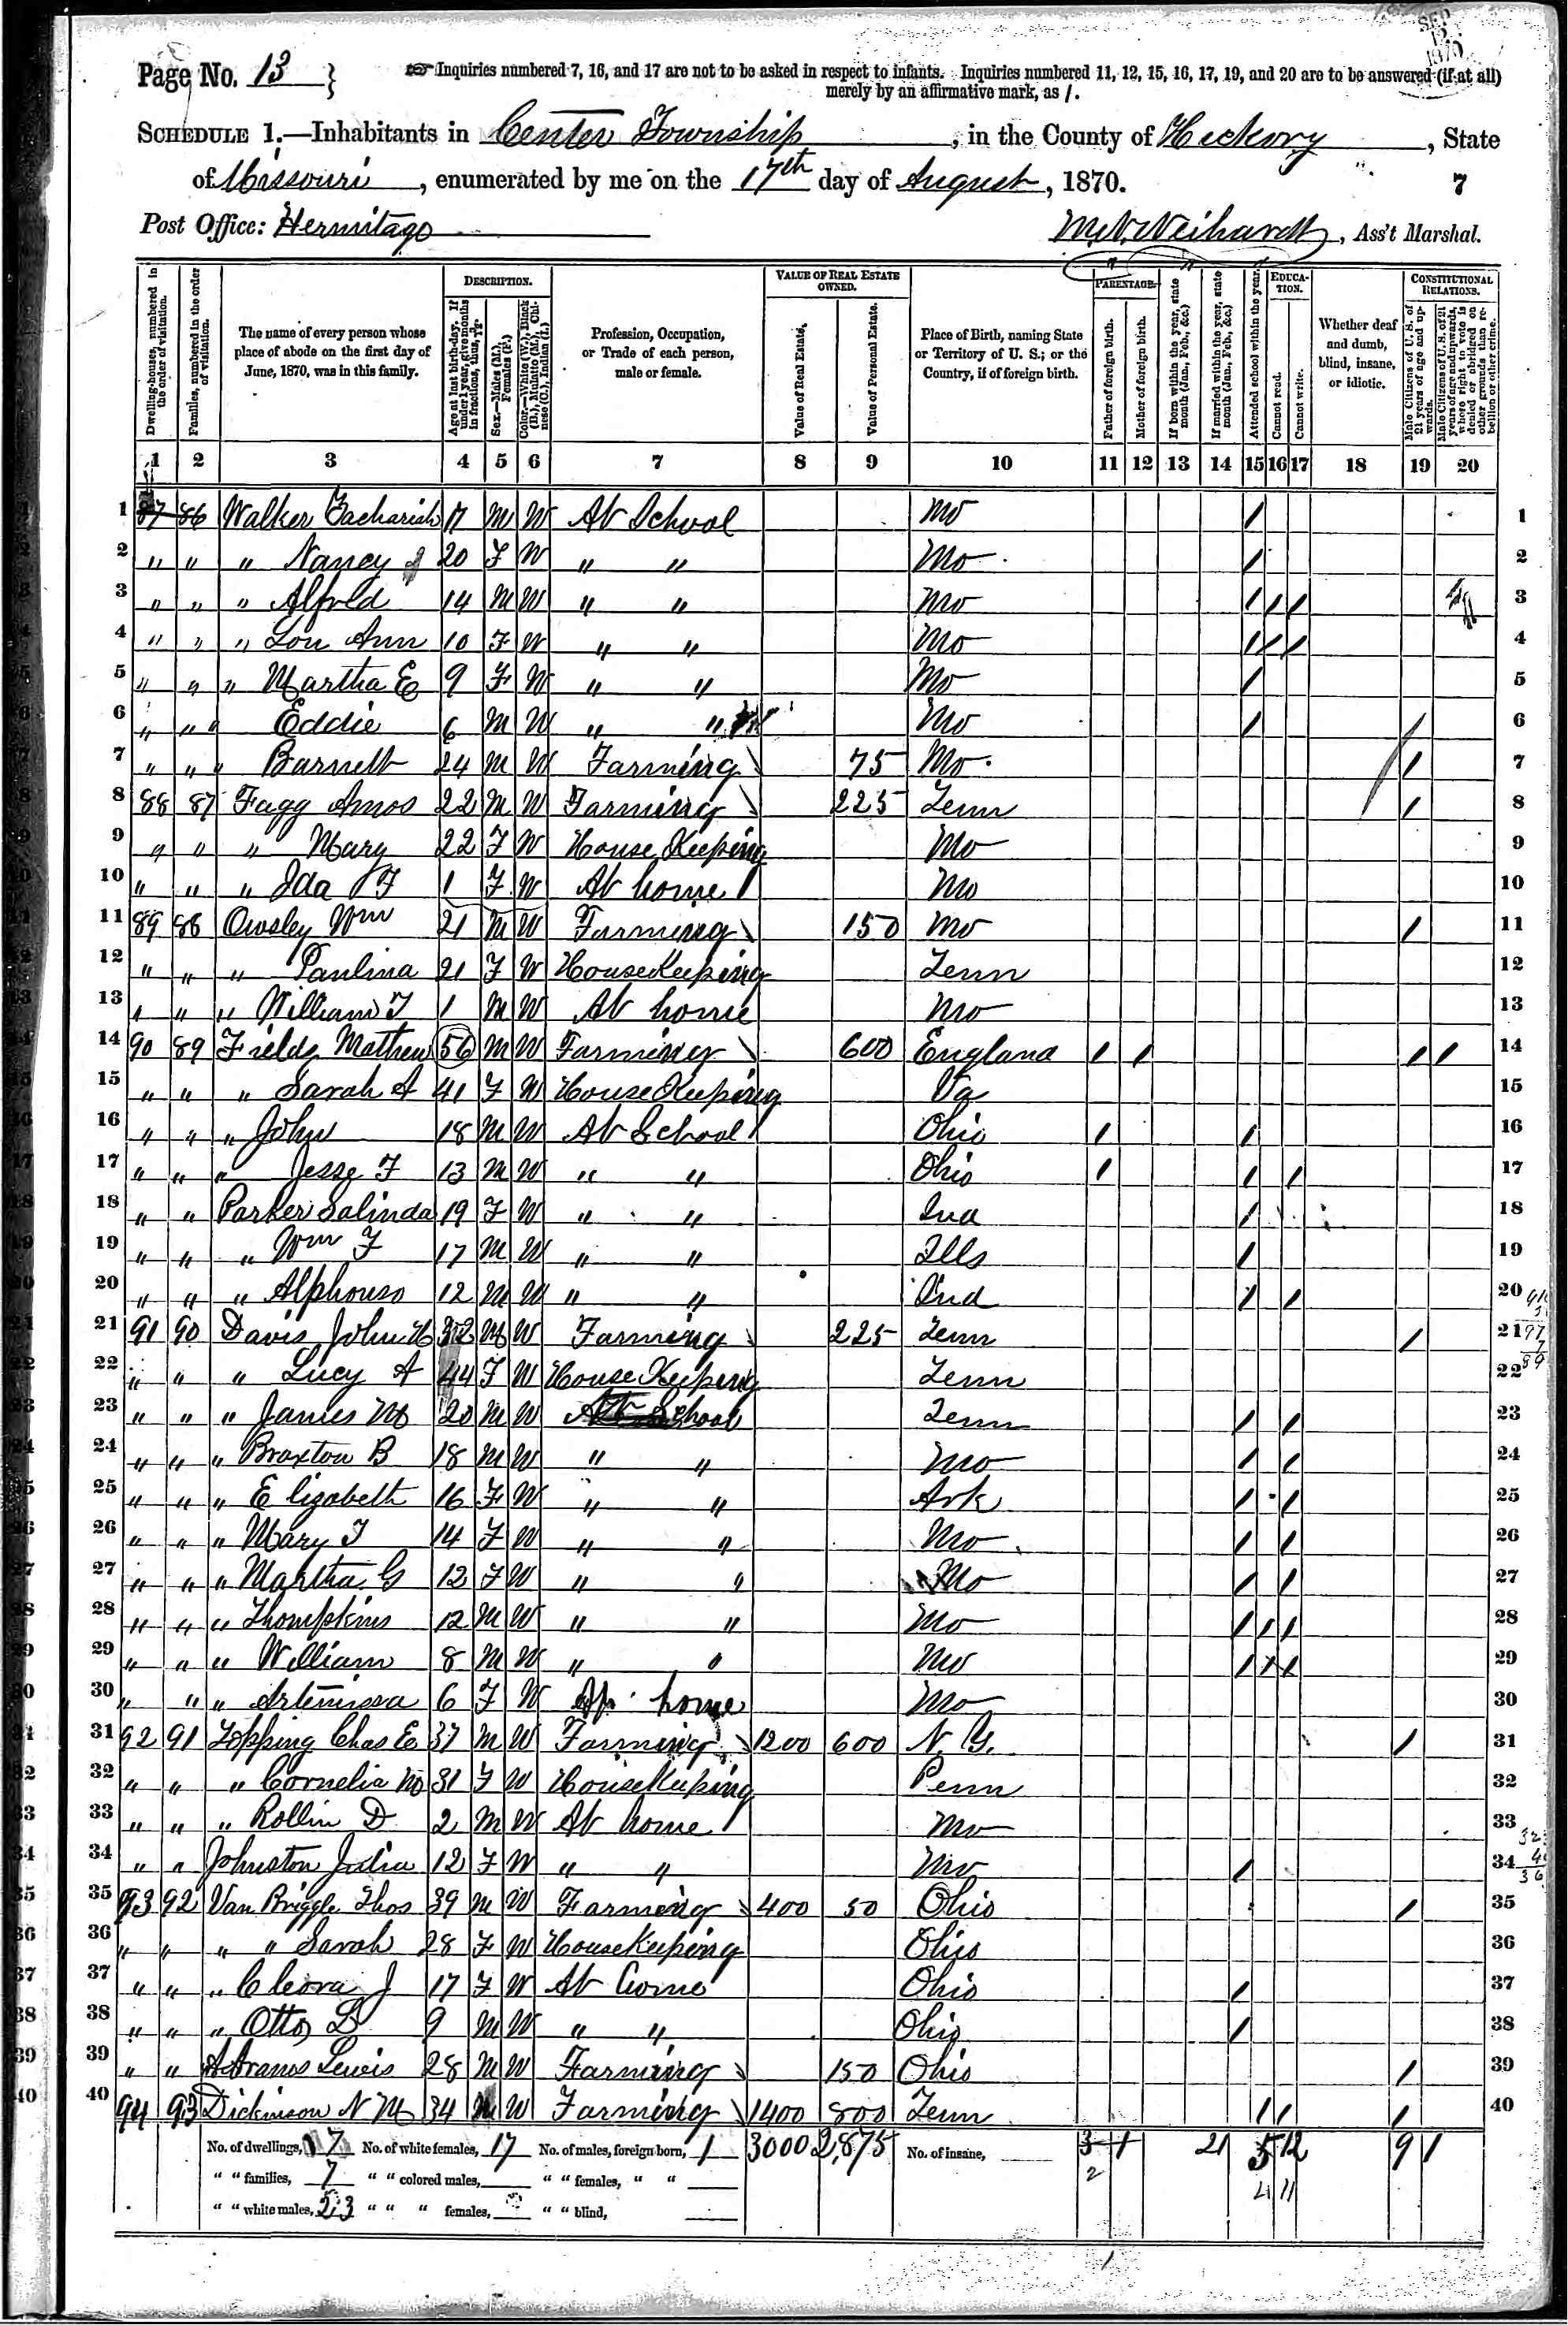 SEP 1870
Page No. 13 }
Inquiries numbered 7, 16, and 17 are not to be asked in respect to infants. Inquiries numbered 11, 12, 15, 16, 17, 19, and 20 are to be answered (if at all)
merely by an affirmative mark, as /.
SCHEDULE 1.—Inhabitants in Center Township, in the County of Hickory, State
of Missouri, enumerated by me on the 17th day of August, 1870.
7
Post Office: Hermitage
Ass't Marshal.
Dwelling-houses, numbered in the order of visitation.
Families, numbered in the order of visitation.
The name of every person whose place of abode on the first day of June, 1870, was in this family.
DESCRIPTION.
Age at last birth-day. If under 1 year, give months in fractions, thus,
Sex.—Males (M.), Females (F.)
Color.—White (W.), Black (B.), Mulatto (M.), Chinese (C.), Indian (I.)
Profession, Occupation, or Trade of each person, male or female.
VALUE OF REAL ESTATE OWNED.
Value of Real Estate.
Value of Personal Estate.
Place of Birth, naming State or Territory of U. S.; or the Country, if of foreign birth.
PARENTAGE.
Father of foreign birth.
Mother of foreign birth.
If born within the year, state month (Jan., Feb., &c.)
If married within the year, state month (Jan., Feb., &c.)
Attended school within the year.
EDUCATION.
Cannot read.
Cannot write.
Whether deaf and dumb, blind, insane, or idiotic.
CONSTITUTIONAL RELATIONS.
Male Citizens of U. S. of 21 years of age and upwards.
Male Citizens of U. S. of 21 years of age and upwards, whose right to vote is denied or abridged on other grounds than rebellion or other crime.
1 2 3 4 5 6 7 8 9 10 11 12 13 14 15 16 17 18 19 20
1 87 86 Walker Zachariah 17 M W At School Mo / 1
2 " " " Nancy 20 F W " " Mo / 2
3 " " " Alfred 14 M W " " Mo / / / 3
4 " " " Lou Ann 10 F W " " Mo / / / 4
5 " " " Martha E 9 F W " " Mo / 5
6 " " " Eddie 6 M W " " Mo / 6
7 " " " Barnett 24 M W Farming 75 Mo / 7
8 88 87 Fagg Amos 22 M W Farming 225 Tenn / 8
9 " " " Mary 22 F W House Keeping Mo 9
10 " " " Ida F 1 F W At home Mo 10
11 89 88 Owsley Wm 21 M W Farming 150 Mo / 11
12 " " " Paulina 21 F W House Keeping Tenn 12
13 " " " William T 1 M W At home Mo 13
14 90 89 Fields Mathew 56 M W Farming 600 England / / / / 14
15 " " " Sarah A 41 F W House Keeping Va 15
16 " " " John 18 M W At School Ohio / / 16
17 " " " Jesse F 13 M W " " Ohio / / / 17
18 " " Parker Salinda 19 F W " " Ind / 18
19 " " " Wm F 17 M W " " Ills / 19
20 " " " Alphonso 12 M W " " Ind / / 20
21 91 90 Davis John H 32 M W Farming 225 Tenn / 21
22 " " " Lucy A 44 F W House Keeping Tenn 22
23 " " " James M 20 M W At School Tenn / / 23
24 " " " Braxton B 18 M W " " Mo / / 24
25 " " " Elizabeth 16 F W " " Ark / / 25
26 " " " Mary J 14 F W " " Mo / / 26
27 " " " Martha G 12 F W " " Mo / / 27
28 " " " Thompkins 12 M W " " Mo / / / 28
29 " " " William 8 M W " " Mo / / / 29
30 " " " Artemissa 6 F W At home Mo 30
31 92 91 Topping Chas E 37 M W Farming 1200 600 N. Y. / 31
32 " " " Cornelia M 31 F W House Keeping Penn 32
33 " " " Rollin D 2 M W At home Mo 33
34 " " Johnston Julia 12 F W " " Mo / 34
35 93 92 Van Briggle Thos 39 M W Farming 400 50 Ohio / 35
36 " " " " Sarah 28 F W House Keeping Ohio 36
37 " " " Cleora J 17 F W At home Ohio / 37
38 " " " Otto L 9 M W " " Ohio / 38
39 " " Abrams Lewis 28 M W Farming 150 Ohio / 39
40 94 93 Dickinson N M 34 M W Farming 1400 800 Tenn / / / 40
No. of dwellings, 7 No. of white females, 17 No. of males, foreign born, 1 3000 2,875 No. of insane, 3 1 21 5 12 9 1
" " families, 7 " " colored males, " " females, " " 2 4 11
" " white males, 23 " " " females, " " blind,